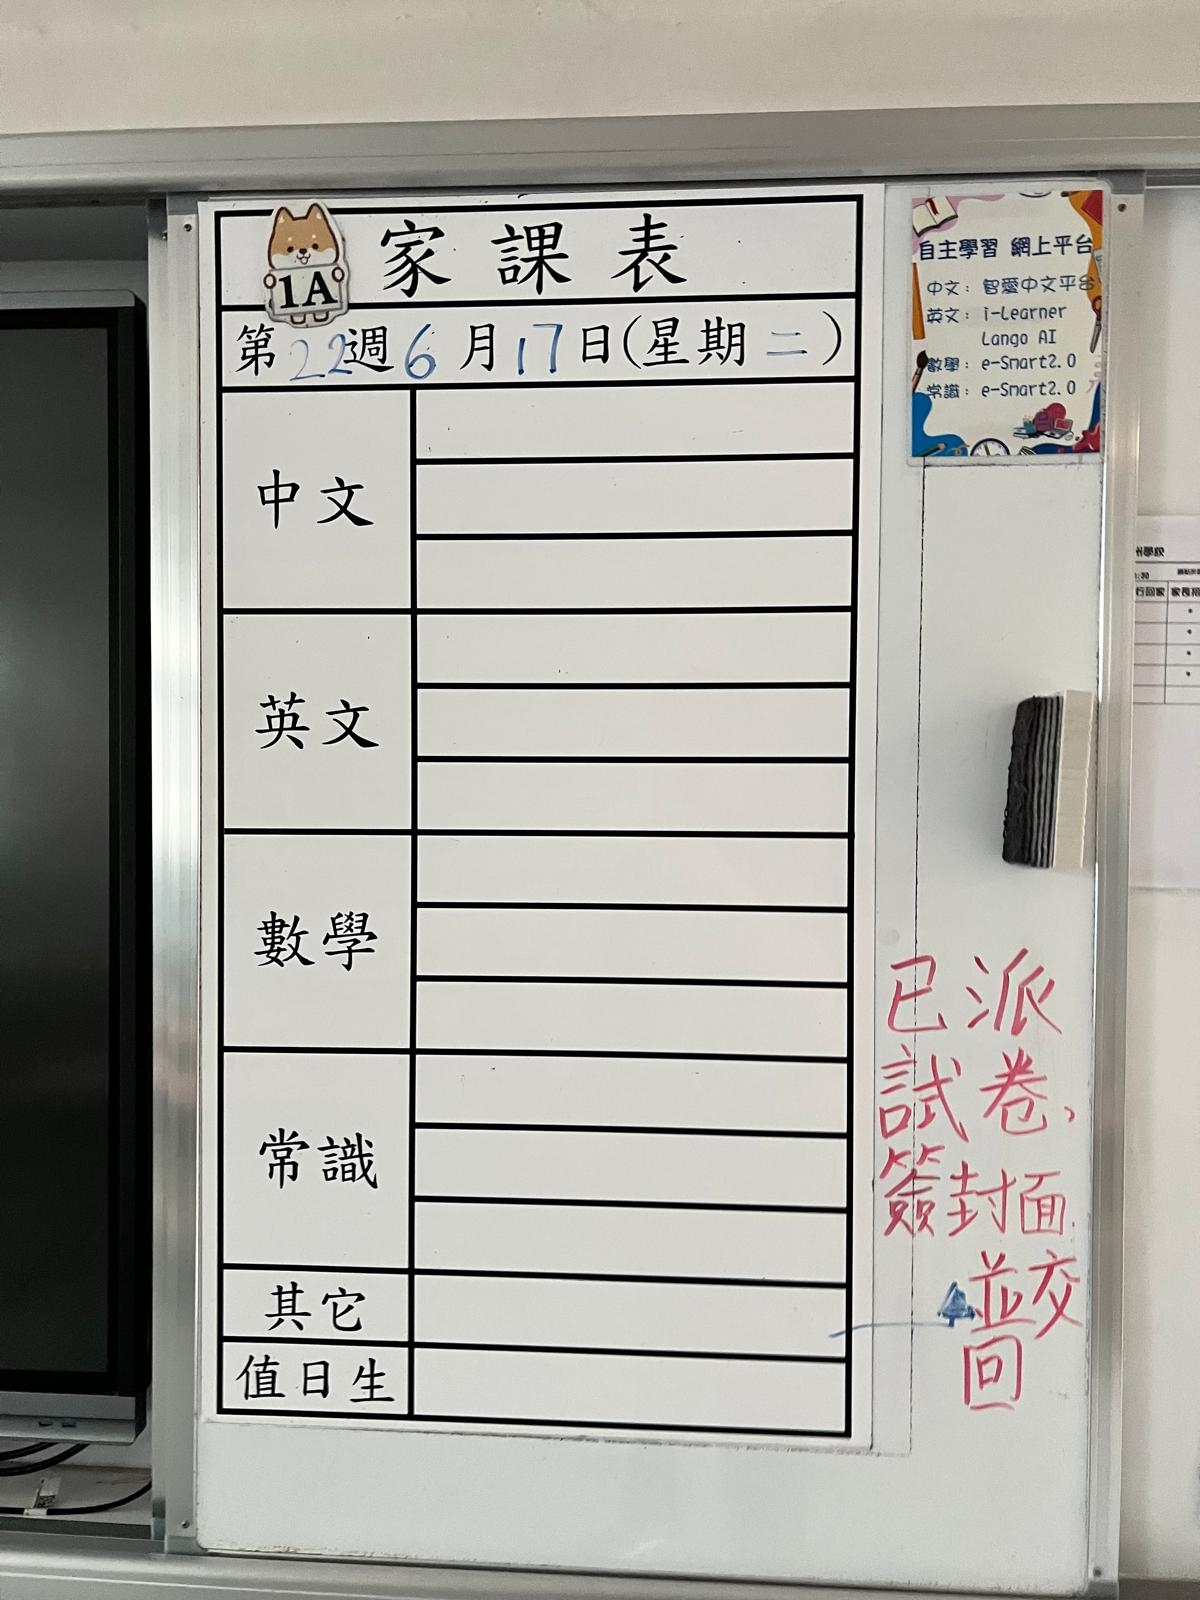 1A
家課表
第22週6月17日(星期二)
中文
英文
數學
常識
其它
值日生
自主學習 網上平台
中文：智愛中文平台
英文：i-Learner
Lango AI
數學：e-Smart2.0
常識：e-Smart2.0
已派
試卷，
簽封面
並交
回
州學校
:30
行回家